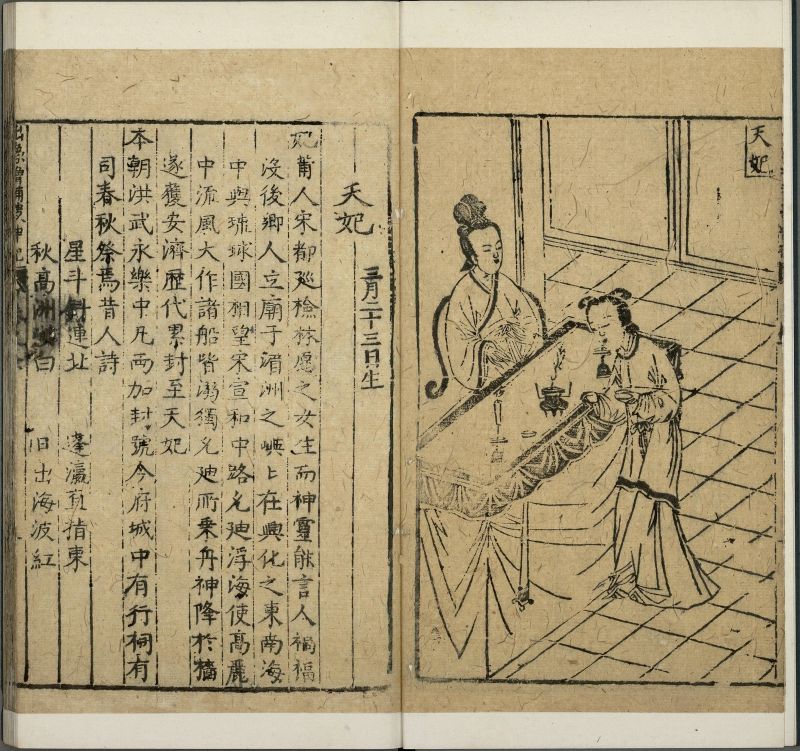 天妃
天妃　三月二十三日生
妃莆人宋都巡檢林愿之女生而神靈能言人禍福
沒後鄉人立廟于湄洲之嶼上在興化之東南海
中與琉球國相望宋宣和中路允迪浮海使高麗
中流風大作諸船皆溺獨允迪所乘舟神降於檣
遂獲安濟歷代累封至天妃
本朝洪武永樂中凡兩加封號今府城中有行祠有
司春秋祭焉昔人詩
星斗斜連北　蓬瀛直指東
秋高洲白　日出海波紅
出像增補搜神記